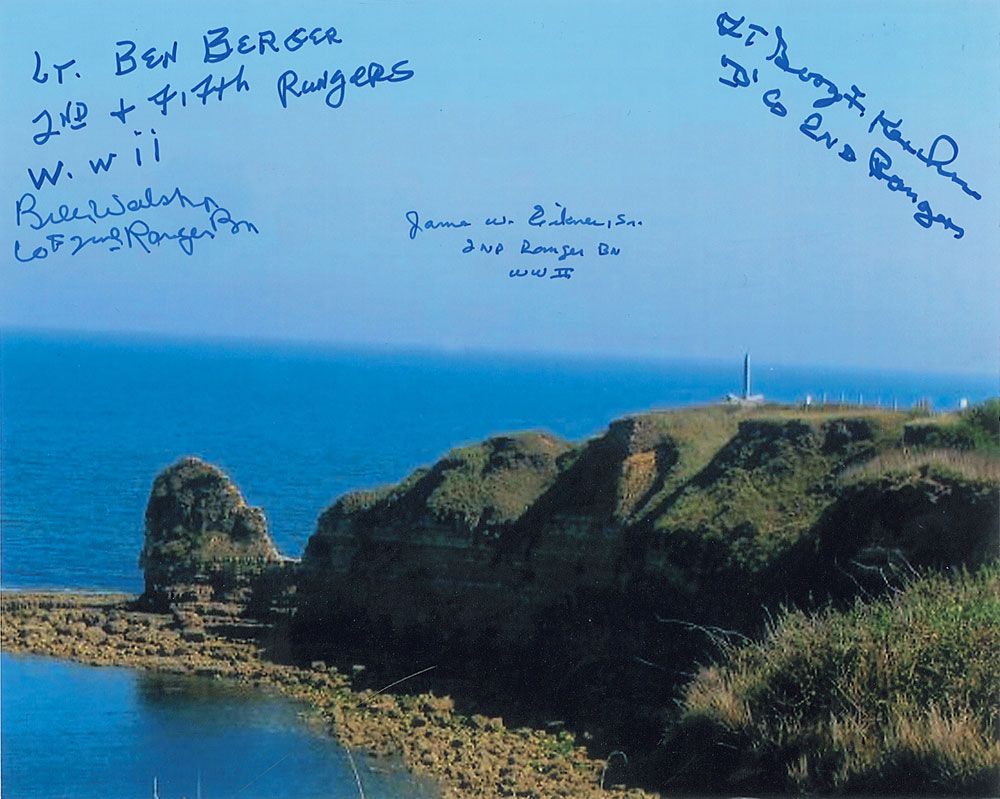 Lt. BEN BERGER
2ND + Fifth Rangers
W. W ii
Bill Walsh
Co F 2nd Ranger Bn
James W. Eikner, Sr.
2ND Ranger BN
WW II
LT George F. Kerchner
"D" Co 2ND Rangers